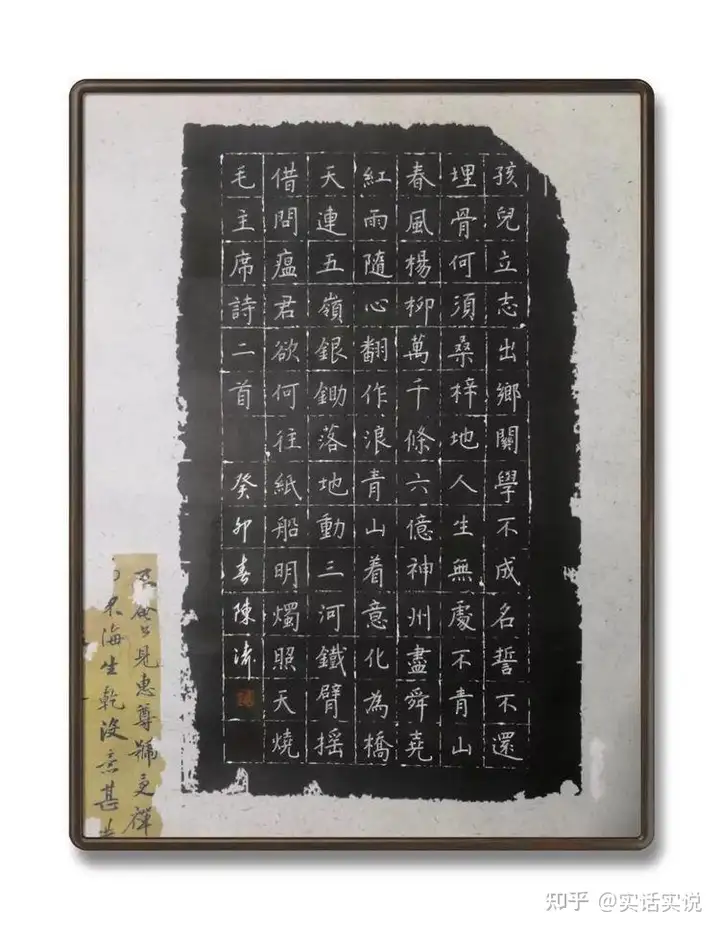 孩兒立志出鄉關學不成名誓不還
埋骨何須桑梓地人生無處不青山
春風楊柳萬千條六億神州盡舜堯
紅雨隨心翻作浪青山着意化為橋
天連五嶺銀鋤落地動三河鐵臂摇
借問瘟君欲何往紙船明燭照天燒
毛主席詩二首 癸卯春陳
見惠尊號更禪
海生乾沒意甚
知乎 @实话实说